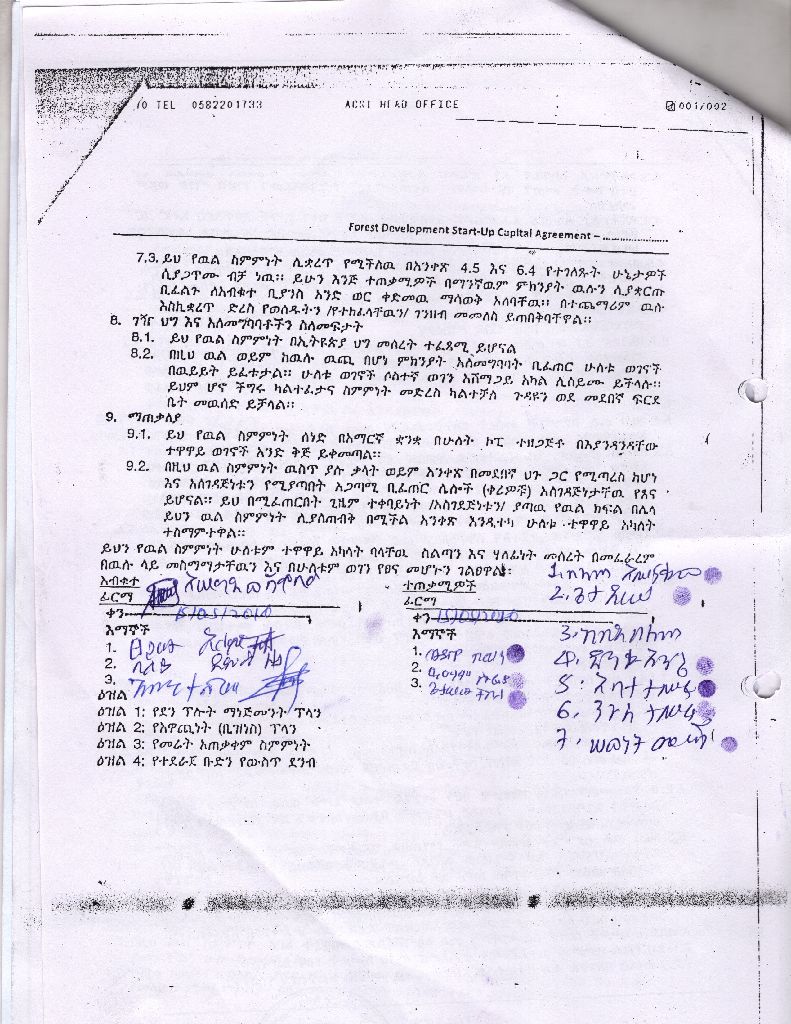 TEL 0582201733 ACSI HEAD OFFICE 001/002
Forest Development Start-Up Capital Agreement – ......................
7.3. ይህ የዉል ስምምነት ሊቋረጥ የሚችለዉ በአንቀጽ 4.5 እና 6.4 የተገለጹት ሁኔታዎች
ሲያጋጥሙ ብቻ ነዉ። ይሁን እንጅ ተጠቃሚዎች በማንኛዉም ምክንያት ዉሉን ሊያቋርጡ
ቢፈልጉ ለአብቁተ ቢያንስ አንድ ወር ቀድመዉ ማሳወቅ አለባቸዉ። በተጨማሪም ዉሉ
እስኪቋረጥ ድረስ የወሰዱትን /የተከፈላቸዉን/ ገንዘብ መመለስ ይጠበቅባቸዋል።
8. ገዥ ህግ እና አለመግባባቶችን ስለመፍታት
8.1. ይህ የዉል ስምምነት በኢትዮጵያ ህግ መሰረት ተፈጻሚ ይሆናል
8.2. በዚህ ዉል ወይም ከዉሉ ዉጪ በሆነ ምክንያት አለመግባባት ቢፈጠር ሁለቱ ወገኖች
በዉይይት ይፈቱታል። ሁለቱ ወገኖች ሶስተኛ ወገን አሸማጋይ አካል ሊሰይሙ ይችላሉ።
ይህም ሆኖ ችግሩ ካልተፈታና ስምምነት መድረስ ካልተቻለ ጉዳዩን ወደ መደበኛ ፍርድ
ቤት መዉሰድ ይቻላል።
9. ማጠቃለያ
9.1. ይህ የዉል ስምምነት ሰነድ በአማርኛ ቋንቋ በሁለት ኮፒ ተዘጋጅቶ በእያንዳንዳቸው
ተዋዋይ ወገኖች አንድ ቅጅ ይቀመጣል።
9.2. በዚህ ዉል ስምምነት ዉስጥ ያሉ ቃላት ወይም አንቀጽ በመደበኛ ህጉ ጋር የሚጣረስ ከሆነ
እና አስገዳጅነቱን የሚያጣበት አጋጣሚ ቢፈጠር ሌሎች (ቀሪዎቹ) አስገዳጅነታቸዉ የጸና
ይሆናል። ይህ በሚፈጠርበት ጊዜም ተቀባይነት /አስገደጅነቱን/ ያጣዉ የዉል ክፍል በሌላ
ይህን ዉል ስምምነት ሊያስጠብቅ በሚችል አንቀጽ እንዲተካ ሁለቱ ተዋዋይ አካላት
ተስማምተዋል።
ይህን የዉል ስምምነት ሁለቱም ተዋዋይ አካላት ባላቸዉ ስልጣን እና ሃላፊነት መሰረት በመፈራረም
በዉሉ ላይ መስማማታቸዉን እና በሁለቱም ወገን የፀና መሆኑን ገልፀዋል፡
አብቁተ ተጠቃሚዎች
ፊርማ ፊርማ
ቀን ቀን
እማኞች እማኞች
1. 1.
2. 2.
3. 3.
ዕዝል
ዕዝል 1: የደን ፕሎት ማነጅመንት ፕላን
ዕዝል 2: የአዋጪነት (ቢዝነስ) ፕላን
ዕዝል 3: የመሬት አጠቃቀም ስምምነት
ዕዝል 4: የተደራጀ ቡድን የውስጥ ደንብ